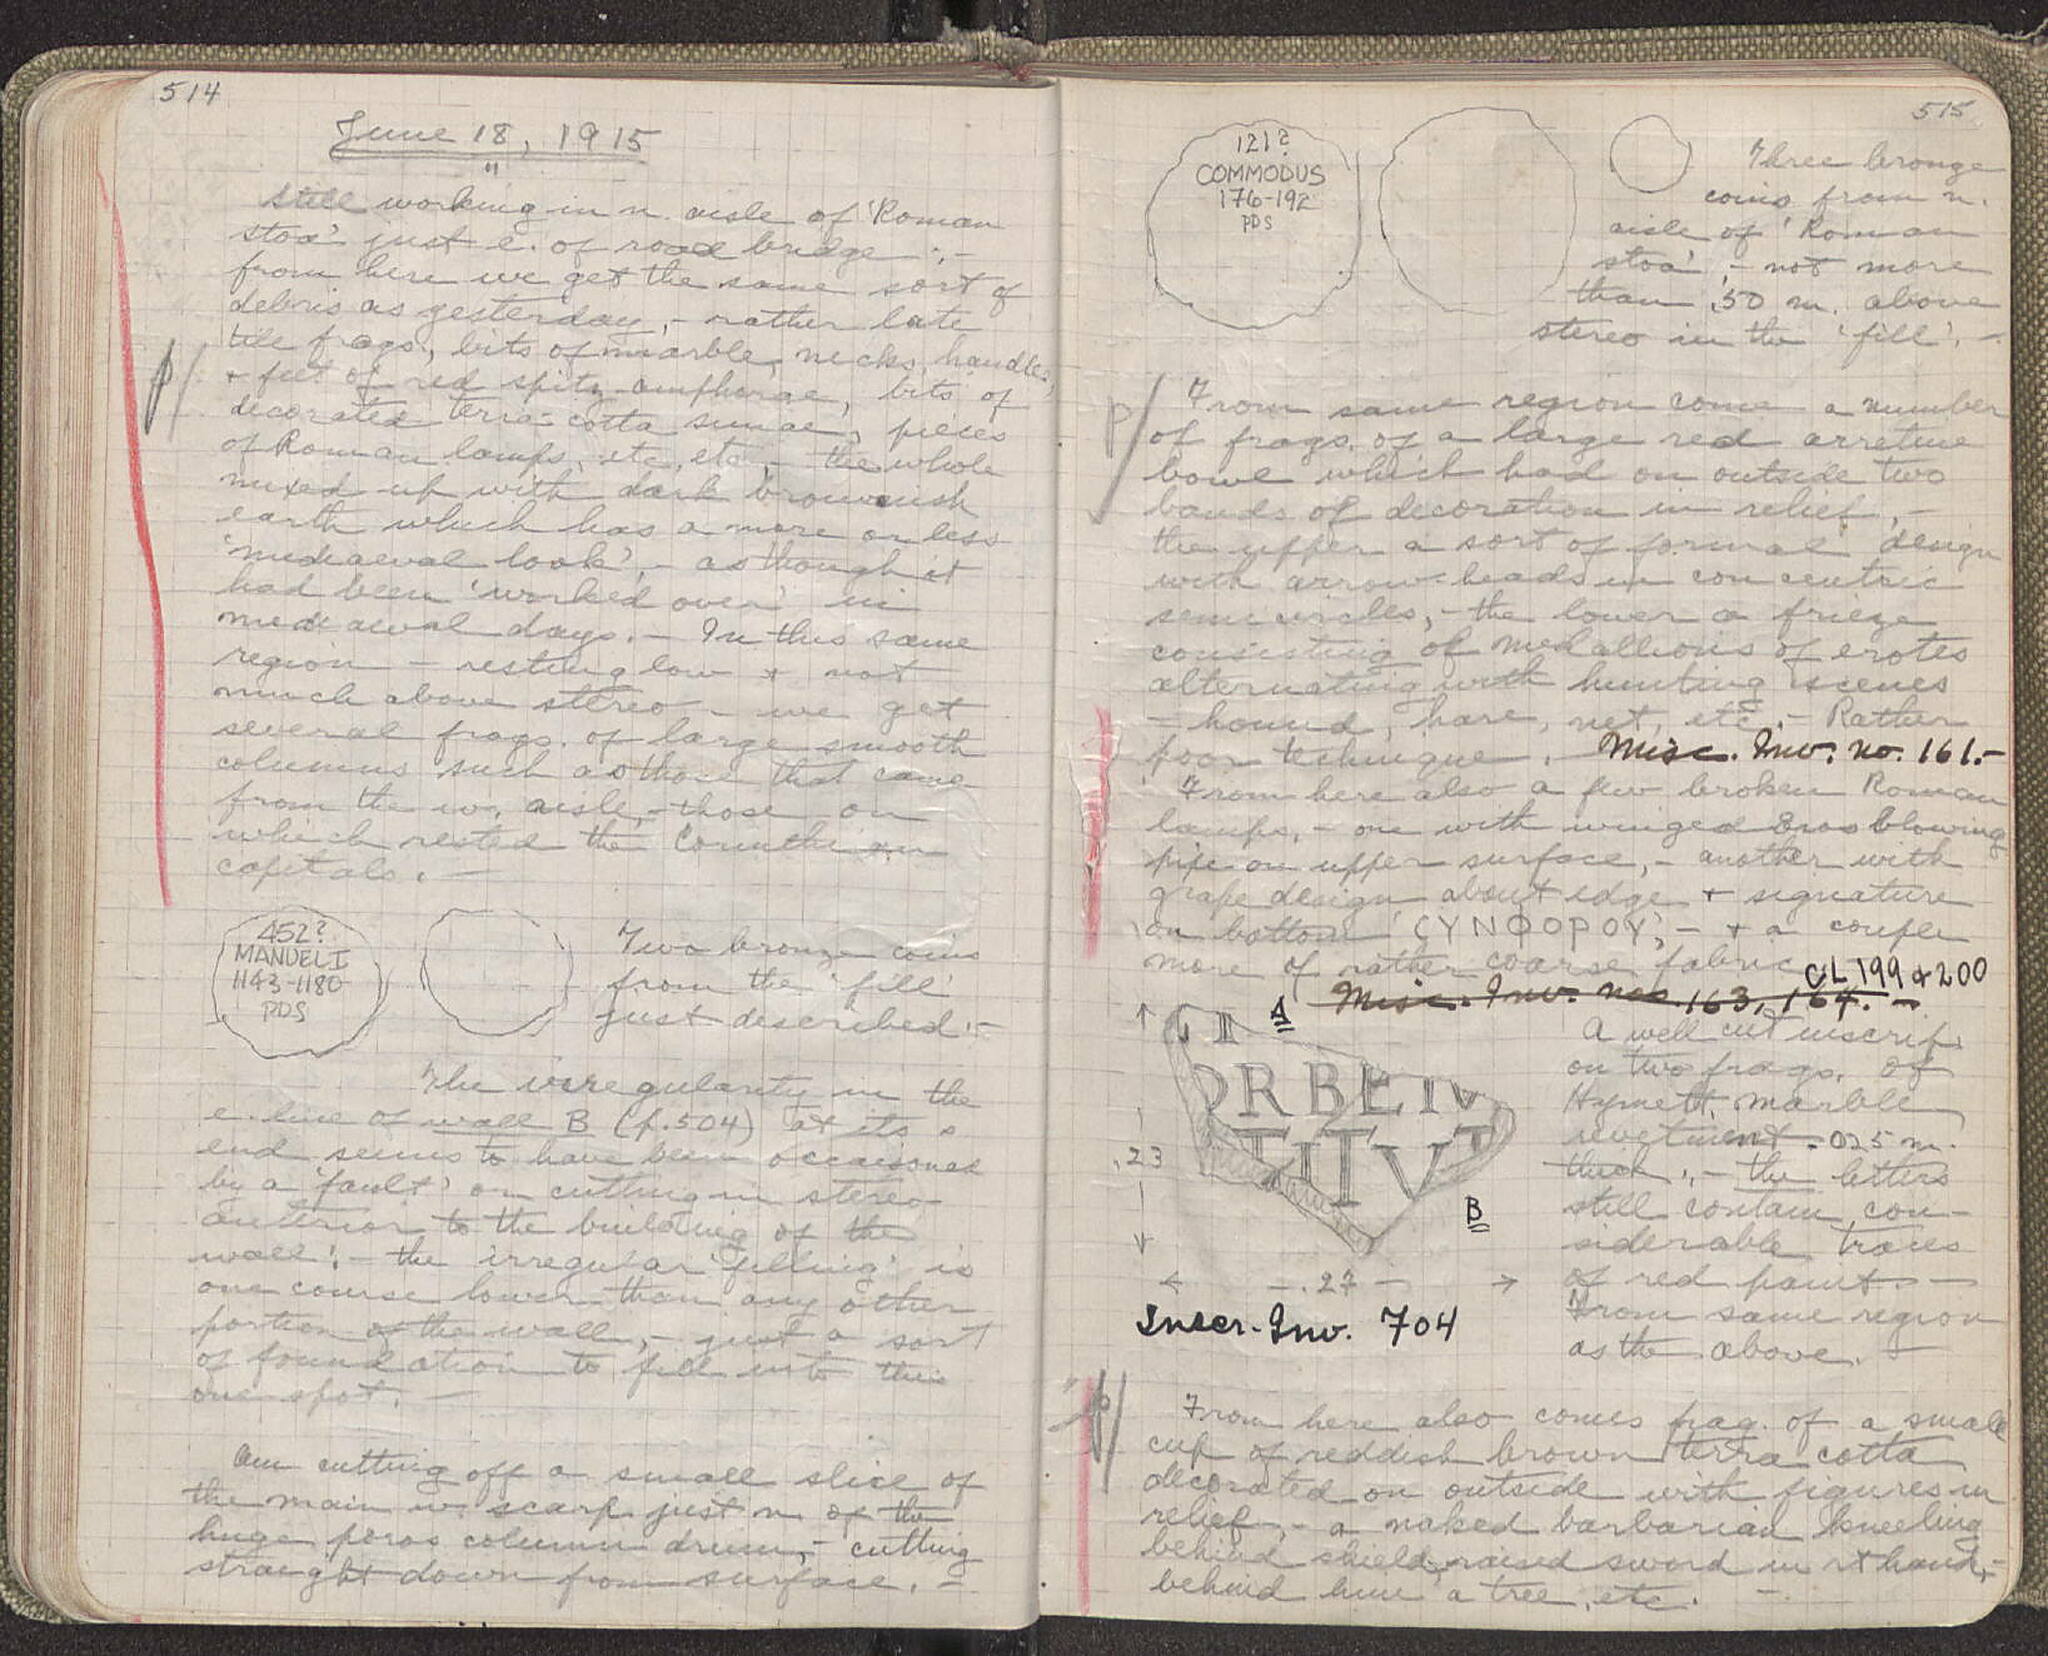 514
June 18, 1915
"
Still working in n. aisle of 'Roman
stoa' just e. of road bridge :, –
from here we get the same sort of
debris as yesterday, – rather late
tile frags., bits of marble, necks, handles,
+ feet of red spitz amphorae, bits of
decorated terra-cotta simae, pieces
of Roman lamps, etc., etc., – the whole
mixed up with dark brownish
earth which has a more or less
'mediaeval look', – as though it
had been 'worked over' in
mediaeval days. – In this same
region – resting low + not
much above stereo – we get
several frags. of large smooth
columns such as those that came
from the w. aisle, – those on
which rested the Corinthian
capitals. –
452?
MANUEL I
1143-1180
PDS
Two bronze coins
from the 'fill'
just described. –
The irregularity in the
e. line of wall B (p.504) at its s
end seems to have been occasioned
by a 'fault' or cutting in stereo
anterior to the building of the
wall! – the irregular 'filling' is
one course lower than any other
portion of the wall, – just a sort
of foundation to fill into this
one spot. –
Am cutting off a small slice of
the main w. scarp just n. of the
huge poros column drum, – cutting
straight down from surface. –
p/
515
121?
COMMODUS
176-192
PDS
Three bronze
coins from n.
aisle of 'Roman
stoa', – not more
than .50 m. above
stereo in the 'fill'. –
p/
From same region come a number
of frags. of a large red arretine
bowl which had on outside two
bands of decoration in relief, –
the upper a sort of formal design
with arrow-heads in concentric
semicircles, – the lower a frieze
consisting of medallions of erotes
alternating with hunting scenes
– hound, hare, net, etc. – Rather
poor technique. Misc. Inv. no. 161. –
From here also a few broken Roman
lamps, – one with winged Eros blowing
pipe on upper surface, – another with
grape design about edge + signature
on bottom 'CYNΦOPOY', – + a couple
more of rather coarse fabric. CL 199 + 200
Misc. Inv. nos. 163, 164. –
A
ORBEM
TIIVT
B
.23
← – .27 – →
Inscr. Inv. 704
A well cut inscrip.
on two frags. of
Hymett. marble
revetment .025 m.
thick, – the letters
still contain con-
siderable traces
of red paint. –
From same region
as the above. –
p/
From here also comes frag. of a small
cup of reddish brown terra cotta
decorated on outside with figures in
relief, – a naked barbarian kneeling
behind shield, raised sword in rt hand, –
behind him a tree, etc. –